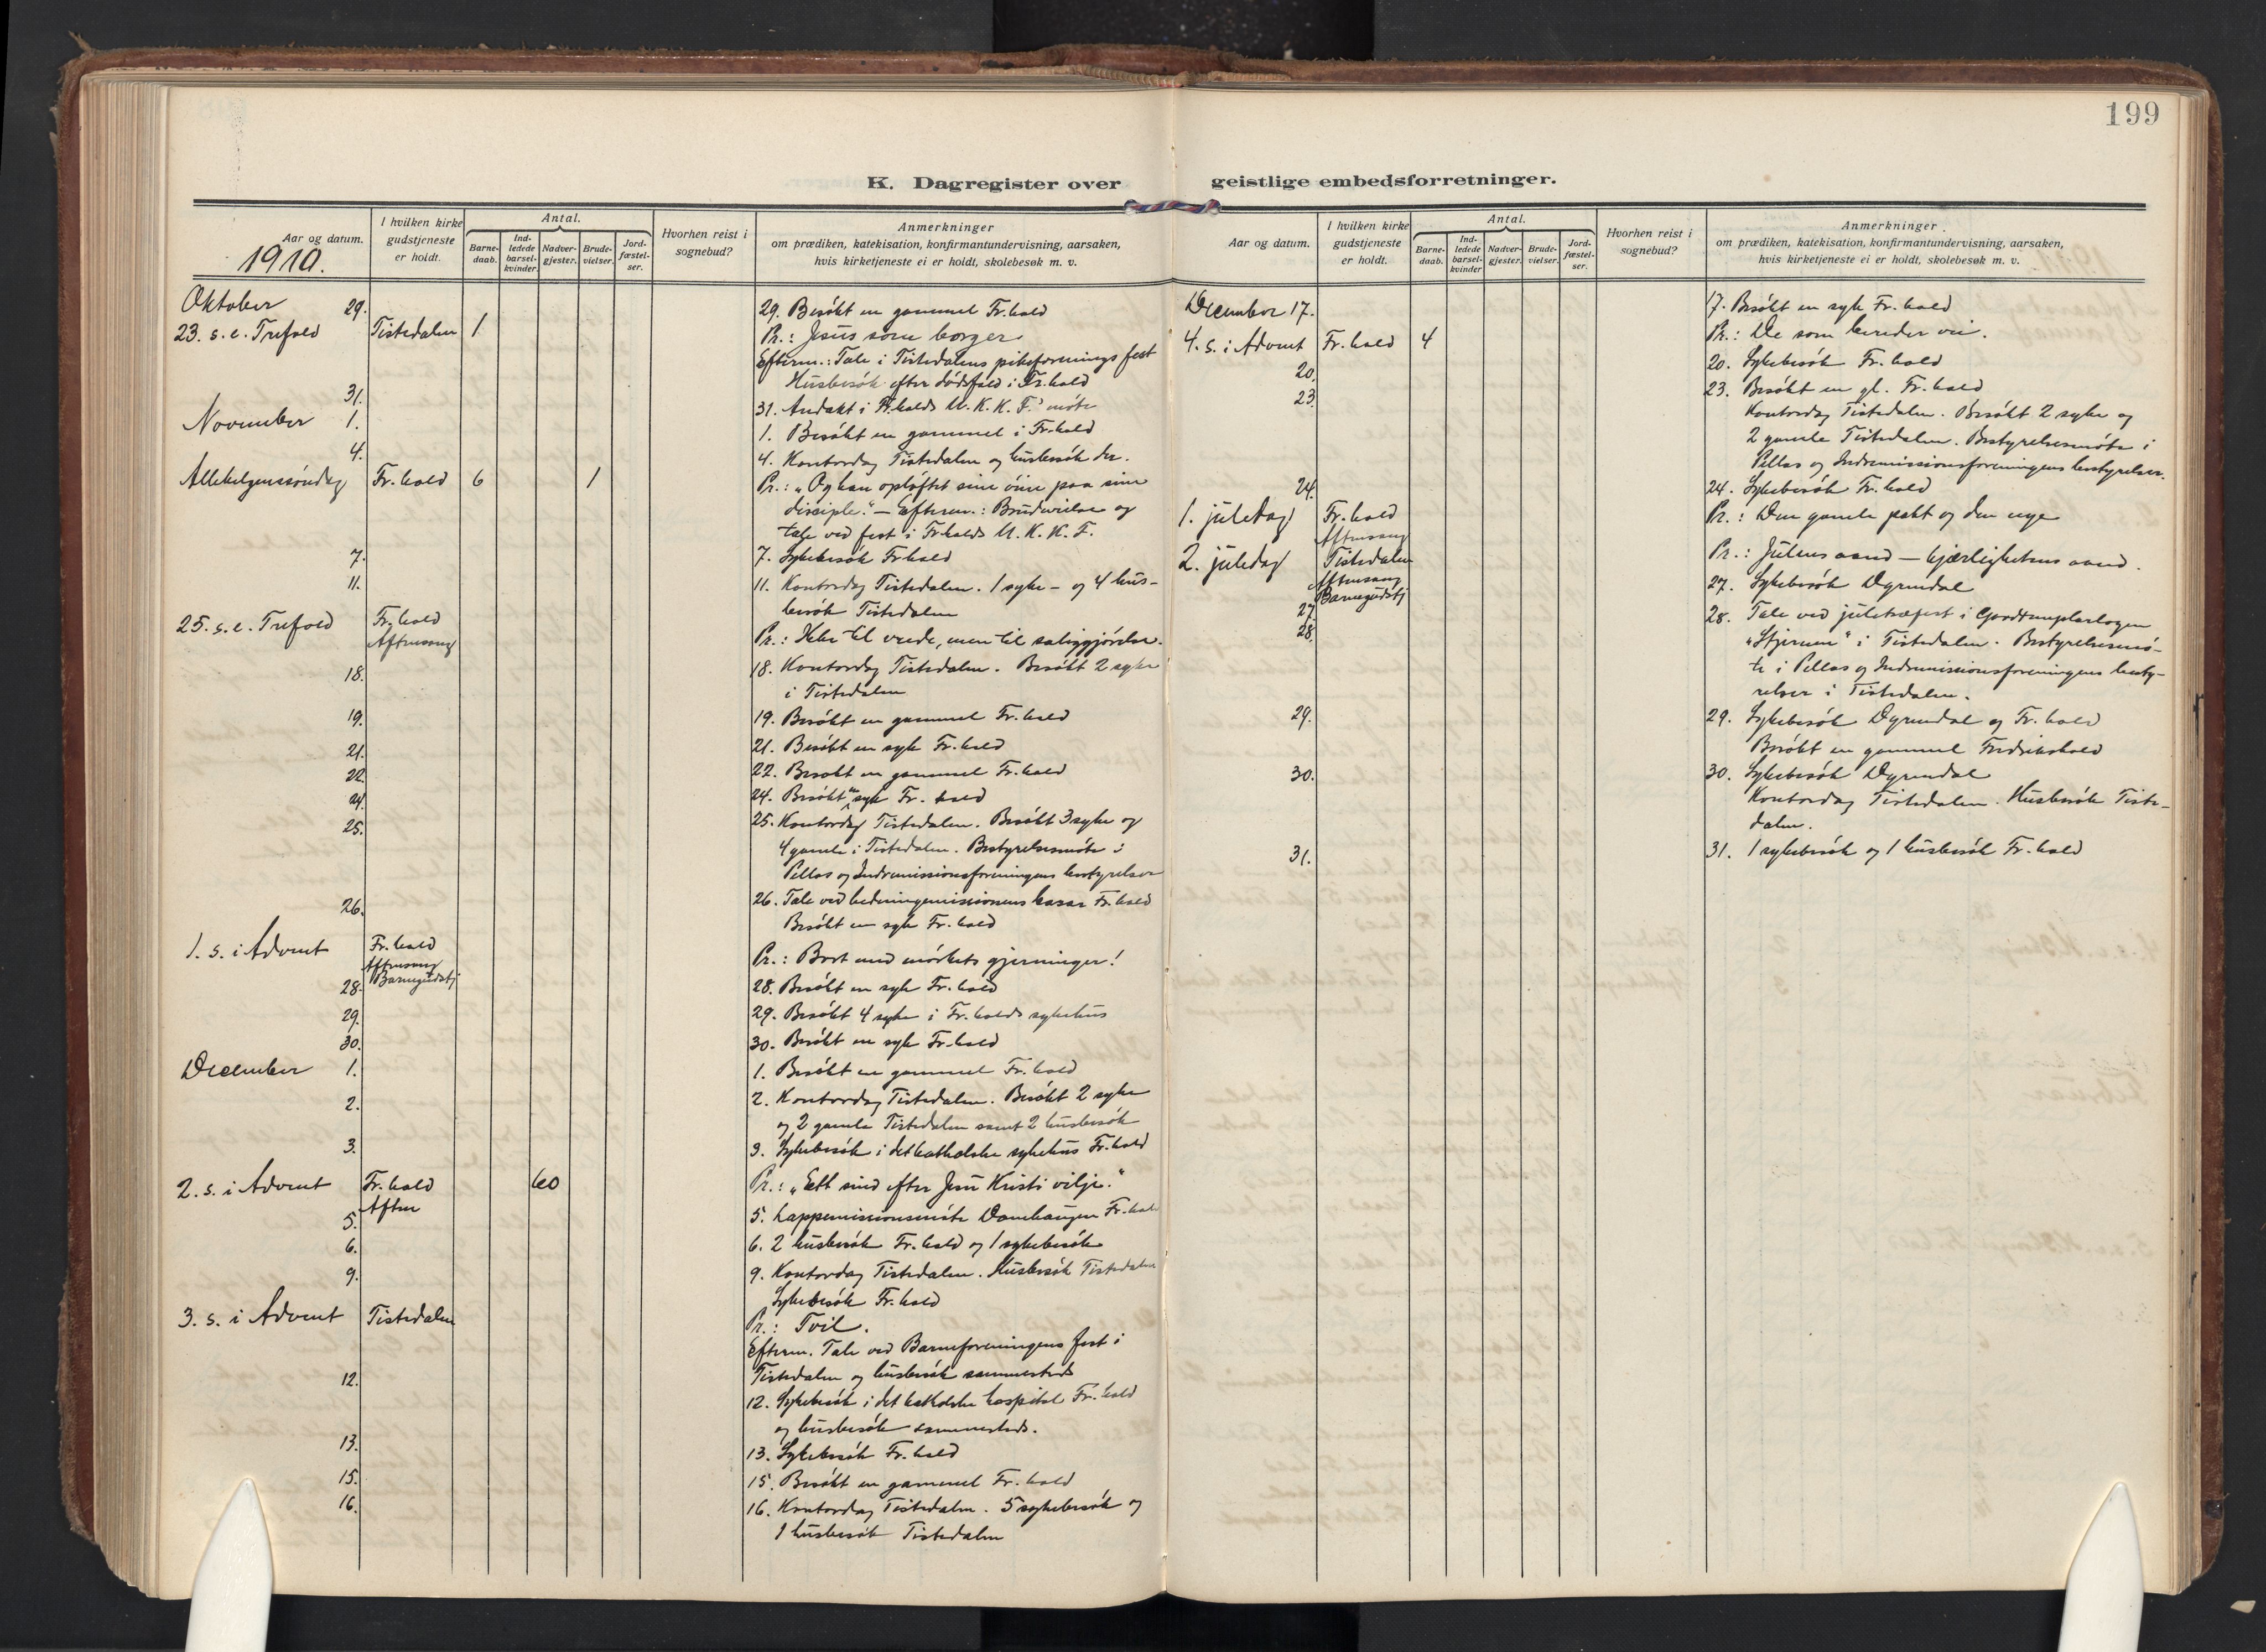 199
K. Dagregister over geistlige embedsforretninger.
Aar og datum.
1910.
I hvilken kirke gudstjeneste er holdt.
Antal.
Barne-daab.
Ind-ledede barsel-kvinder.
Nadver-gjester.
Brude-vielser.
Jord-fæstel-ser.
Hvorhen reist i sognebud?
Anmerkninger
om prædiken, katekisation, konfirmantundervisning, aarsaken,
hvis kirketjeneste ei er holdt, skolebesøk m. v.
Oktober 29.
29. Besøkt en gammel Fr.hald
23. s. e. Trefold Tistedalen 1
Pr.: Jesus som borger
Efterm.: Tale i Tistedalens pikeforenings fest
Husbesøk efter dødsfald i Fr.hald
31.
31. Andakt i Fr.halds U. K. K. F.' møte
November 1.
1. Besøkt en gammel i Fr.hald
4.
4. Kontordag Tistedalen og husbesøk der.
Allehelgenssøndag Fr.hald 6 1
Pr.: „Og han opløftet sine øine paa sine
disciple." — Efterm.: Brudevielse og
tale ved fest i Fr.halds U. K. K. F.
7.
7. Sykebesøk Fr.hald
11.
11. Kontordag Tistedalen. 1 syke- og 4 hus-
besøk Tistedalen
25. s. e. Trefold Fr.hald
Aftensang
Pr.: Ikke til vrede, men til saliggjørelse.
18.
18. Kontordag Tistedalen. Besøkt 2 syke
i Tistedalen
19.
19. Besøkt en gammel Fr.hald
21.
21. Besøkt en syk Fr.hald
22.
22. Besøkt en gammel Fr.hald
24.
24. Besøkt en syk Fr.hald
25.
25. Kontordag Tistedalen. Besøkt 3 syke og
4 gamle i Tistedalen. Bestyrelsesmøte i
Pellas og Indremissionsforeningens bestyrelser
26.
26. Tale ved hedningemissionens basar Fr.hald
Besøkt en syk Fr.hald
1. s. i Advent Fr.hald
Aftensang
Barnegudstj
Pr.: Bort med mørkets gjerninger!
28.
28. Besøkt en syk Fr.hald
29.
29. Besøkt 4 syke i Fr.halds sykehus
30.
30. Besøkt en syk Fr.hald
December 1.
1. Besøkt en gammel Fr.hald
2.
2. Kontordag Tistedalen. Besøkt 2 syke
og 2 gamle Tistedalen samt 2 husbesøk
3.
3. Sykebesøk i det katholske sykehus Fr.hald
2. s. i Advent Fr.hald 60
Aften
Pr.: „Ett sind efter Jesu Kristi vilje."
5.
5. Lappemissionsmøte Damhaugen Fr.hald
6.
6. 2 husbesøk Fr.hald og 1 sykebesøk
9.
9. Kontordag Tistedalen. Husbesøk Tistedalen
Sykebesøk Fr.hald
3. s. i Advent Tistedalen
Pr.: Tvil.
Efterm. Tale ved Barneforeningens fest i
Tistedalen og husbesøk sammesteds
12.
12. Sykebesøk i det katholske hospital Fr.hald
og husbesøk sammesteds.
13.
13. Sykebesøk Fr.hald
15.
15. Besøkt en gammel Fr.hald
16.
16. Kontordag Tistedalen. 5 sykebesøk og
1 husbesøk Tistedalen
Aar og datum.
I hvilken kirke gudstjeneste er holdt.
Antal.
Barne-daab.
Ind-ledede barsel-kvinder
Nadver-gjester.
Brude-vielser.
Jord-fæstel-ser.
Hvorhen reist i sognebud?
Anmerkninger
om prædiken, katekisation, konfirmantundervisning, aarsaken,
hvis kirketjeneste ei er holdt, skolebesøk m. v.
December 17.
17. Besøkt en syk Fr.hald
4. s. i Advent Fr.hald 4
Pr.: De som bereder vei.
20.
20. Sykebesøk Fr.hald
23.
23. Besøkt en gl. Fr.hald
Kontordag Tistedalen. Besøkt 2 syke og
2 gamle Tistedalen. Bestyrelsesmøte i
Pellas og Indremissionsforeningens bestyrelser.
24.
24. Sykebesøk Fr.hald
1. juledag Fr.hald
Aftensang
Pr.: Den gamle pakt og den nye
2. juledag Tistedalen
Aftensang
Barnegudstj
Pr.: Julens aand — kjærlighetens aand.
27.
27. Sykebesøk Dyrendal
28.
28. Tale ved juletræfest i Goodtemplarlogen
„Stjernen" i Tistedalen. Bestyrelsesmø-
te i Pellas og Indremissionsforeningens besty-
relser i Tistedalen.
29.
29. Sykebesøk Dyrendal og Fr.hald
Besøkt en gammel Fredrikshald
30.
30. Sykebesøk Dyrendal
Kontordag Tistedalen. Husbesøk Tiste-
dalen.
31.
31. 1 sykebesøk og 1 husbesøk Fr.hald